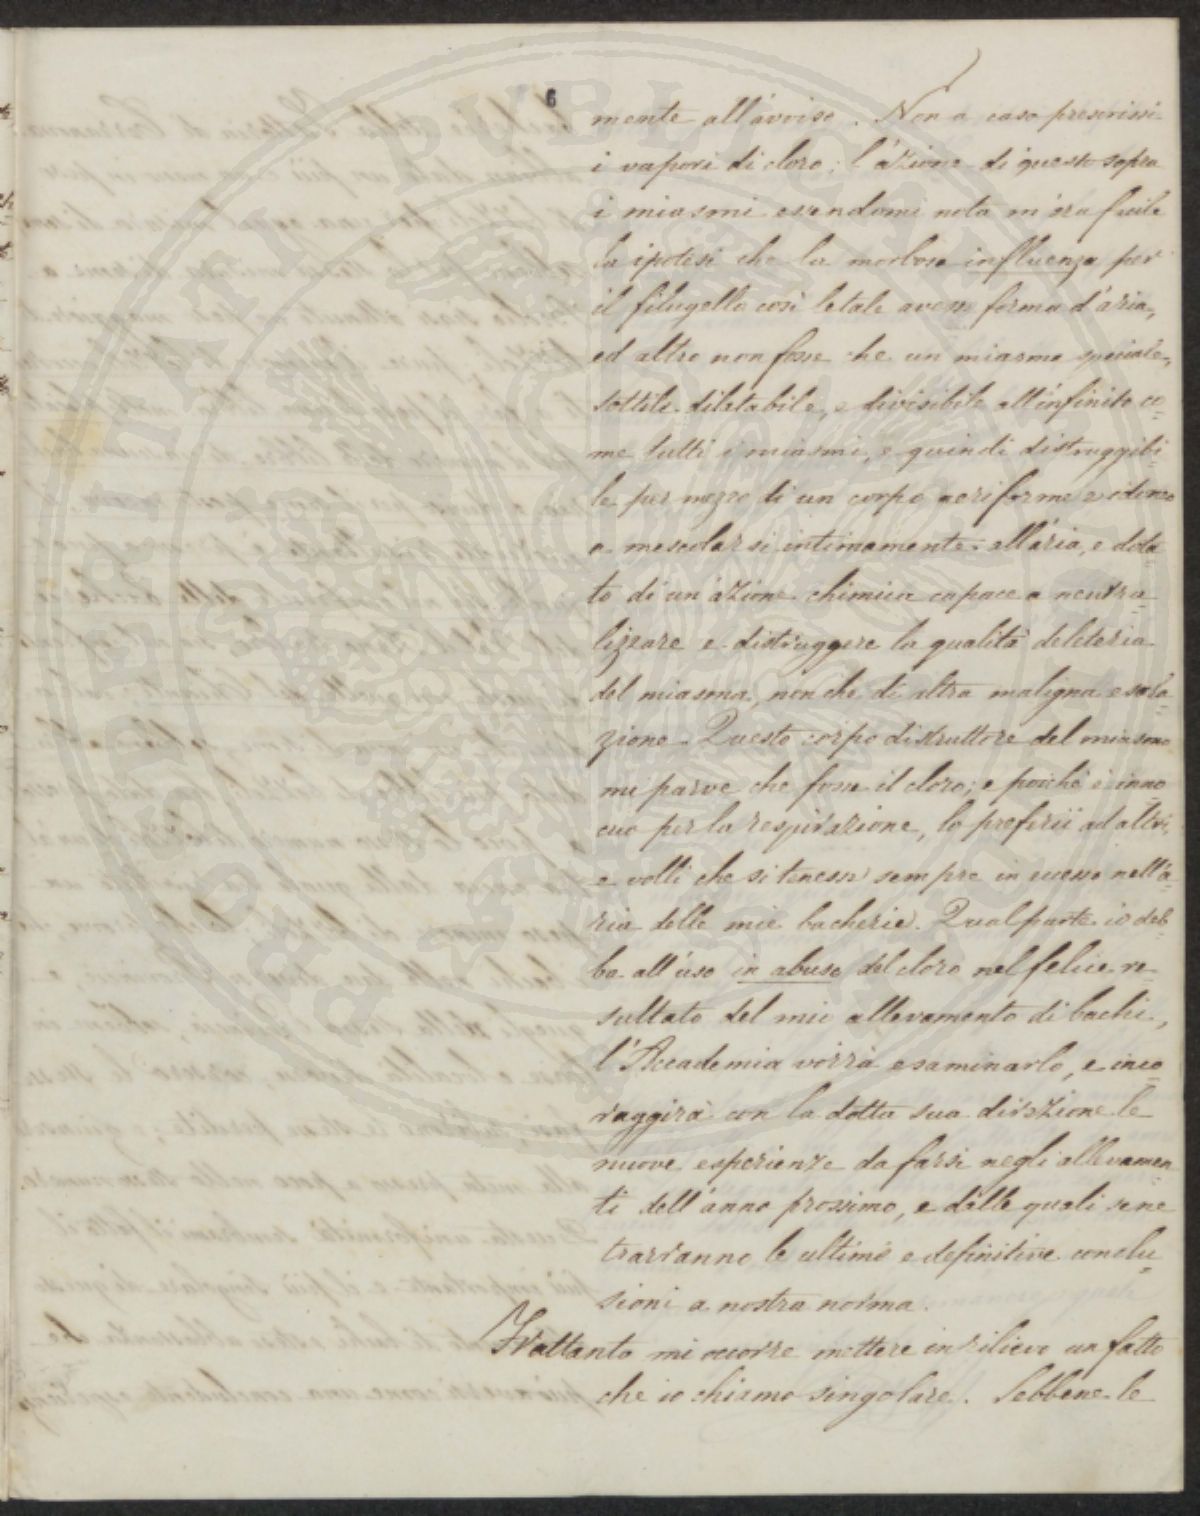 6
mente all'avviso. Non a caso prescrissi
i vapori di cloro; l'azione di questo sopra
i miasmi essendomi nota m'era facile
la ipotesi che la morbosa influenza per
il filugello così letale avesse forma d'aria,
ed altro non fosse che un miasma speciale,
sottile dilatabile, e divisibile all'infinito co=
me tutti i miasmi, e quindi distruggibi=
le per mezzo di un corpo aeriforme
a mescolarsi intimamente all'aria, e dota
to di un'azione chimica capace a neutra=
lizzare e distruggere la qualità deleteria
del miasma, non che di altra maligna esala=
zione. Questo corpo distruttore del miasma
mi parve che fosse il cloro; e poichè è inno=
cuo per la respirazione, lo preferii ad altri,
e volli che si tenesse sempre in eccesso nell'a=
ria delle mie bacherie. Qual parte io deb=
ba all'uso in abuso del cloro nel felice re=
sultato del mio allevamento di bachi,
l'Accademia vorrà esaminarlo, e inco=
raggirà con la dotta sua direzione le
nuove esperienze da farsi negli allevamen
ti dell'anno prossimo, e dalle quali se ne
trarranno le ultime e definitive conclu=
sioni a nostra norma.
Frattanto mi occorre mettere in rilievo un fatto
che io chiamo singolare. Sebbene le